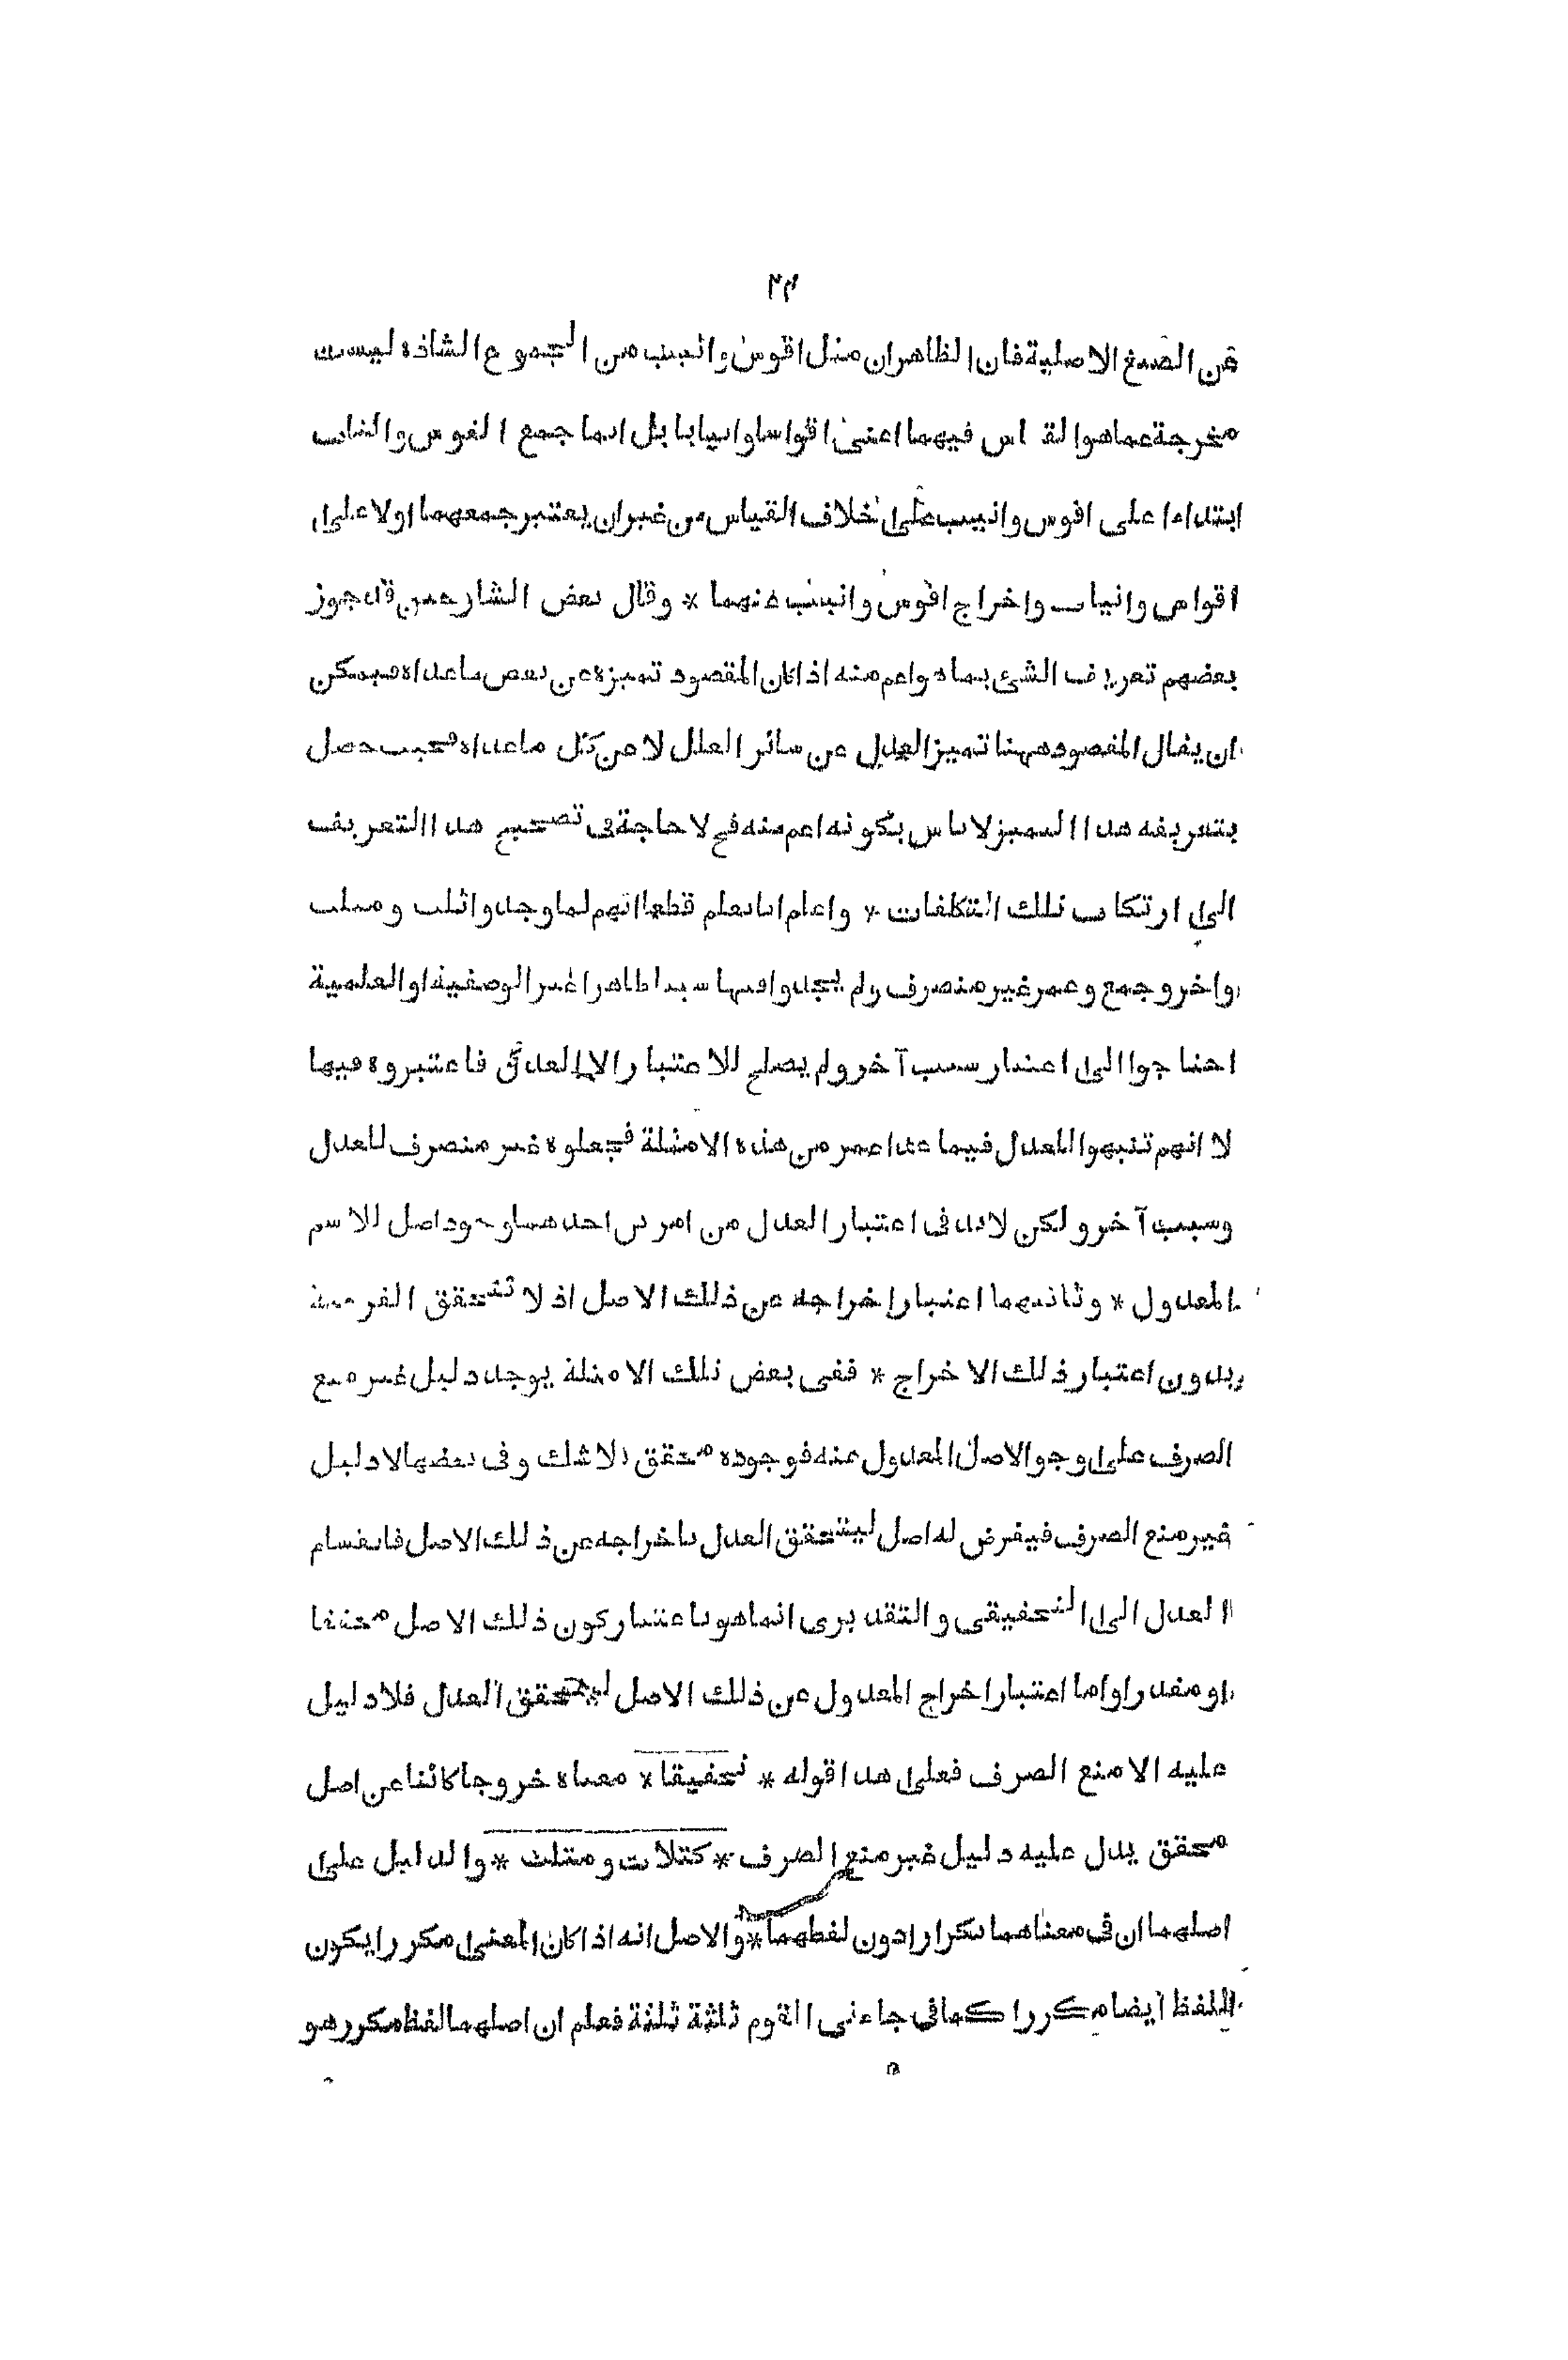 ٢٣
عن الصيغ الاصلية فان الظاهران مثل اقوس وانيب من الجموع الشاذه ليست
مخرجة عما هو القياس فيهما اعنى اقواسا وانيابا بل انما جمع القوس والناب
ابتداءا على اقوس وانيب على خلاف القياس من غيران يعتبر جمعهما اولا على
اقواس وانياب واخراج اقوس وانيب عنهما * وقال بعض الشارحين قد جوز
بعضهم تعريف الشئ بما هو اعم منه اذا كان المقصود تميزه عن بعض ماعداه فيمكن
ان يقال المقصود ههنا تميز العدل عن سائر العلل لا عن كل ماعداه فحيث حصل
بتعريفه هذا التميز لا باس بكونه اعم منه فح لا حاجة فى تصحيح هذا التعريف
الى ارتكاب تلك التكلفات * واعلم انا نعلم قطعا انهم لما وجدوا ثلث ومثلث
واخر وجمع وعمر غير منصرف ولم يجدوا فيها سببا ظاهرا غير الوصفية او العلمية
احتاجوا الى اعتبار سبب آخر ولم يصلح للاعتبار الا العدل فاعتبروه فيها
لا انهم تنبهوا للعدل فيما عدا عمر من هذه الامثلة فجعلوه غير منصرف للعدل
وسبب آخر ولكن لابد فى اعتبار العدل من امرين احدهما وجود اصل للاسم
المعدول * وثانيهما اعتبار اخراجه عن ذلك الاصل اذ لا تتحقق الفرعية
بدون اعتبار ذلك الاخراج * ففى بعض تلك الامثلة يوجد دليل غير منع
الصرف على وجو الاصل المعدول عنه فوجوده محقق بلا شك وفى بعضها لا دليل
غير منع الصرف فيفرض له اصل ليتحقق العدل باخراجه عن ذلك الاصل فانقسام
العدل الى التحقيقى والتقديرى انما هو باعتبار كون ذلك الاصل محققا
او مقدرا واما اعتبار اخراج المعدول عن ذلك الاصل ليتحقق العدل فلا دليل
عليه الا منع الصرف فعلى هذا قوله * تحقيقا * معناه خروجا كائنا عن اصل
محقق يدل عليه دليل غير منع الصرف * كثلاث ومثلث * والدليل على
اصلهما ان فى معناهما تكرارا دون لفظهما * والاصل انه اذا كان المعنى مكررا يكون
اللفظ ايضا مكررا كما فى جاءنى القوم ثلثة ثلثة فعلم ان اصلهما لفظ مكرر هو